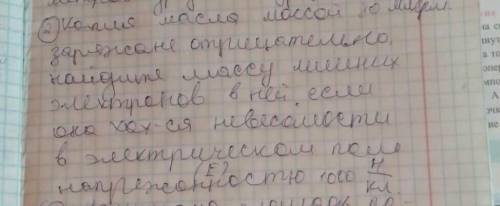 ② Капля масла массой 10 млгрм.
заряжане отрицательно,
найдите массу лишних
электронов в ней, если
она нах-ся невесомости
в электрическом поле
(E)
напряжонностью 1000 Н/кл.